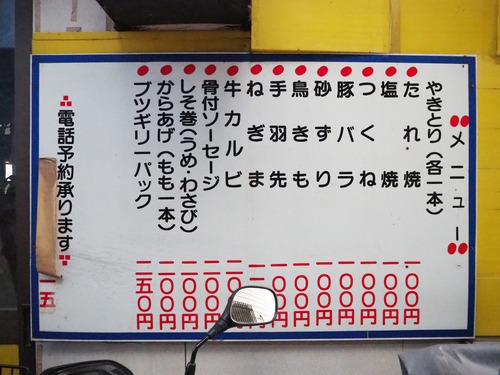 メニュー
やきとり(各一本)
たれ焼 一〇〇円
塩焼 一〇〇円
つくね 一〇〇円
豚バラ 一〇〇円
砂ずり 一〇〇円
鳥きも 一〇〇円
手羽先 円
ねぎま 円
牛カルビ 円
骨付ソーセージ 二〇〇円
しそ巻(うめ・わさび) 二〇〇円
からあげ(もも一本) 二〇〇円
ブツギリーパック 二五〇円
電話予約承ります